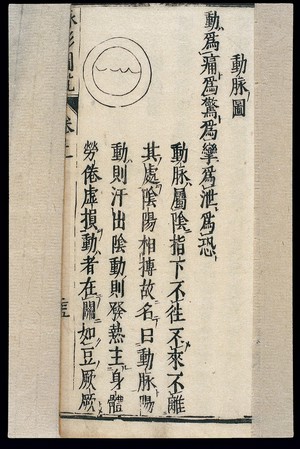 動脉圖
動爲痛爲驚爲攣爲泄爲恐
動脉屬陰指下不徃不來不離
其處陰陽相搏故名曰動脉陽
動則汗出陰動則發熱主身體
勞倦虚損動者在關如豆厥厥